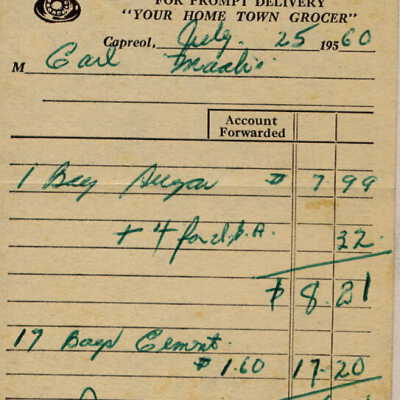 FOR PROMPT DELIVERY
"YOUR HOME TOWN GROCER"
Capreol, July 25 1956 60
M Earl
Account
Forwarded
1 Bag Sugar $ 7 99
+ 4 32
$ 8.21
17 Bags Cement
$1.60 17.20